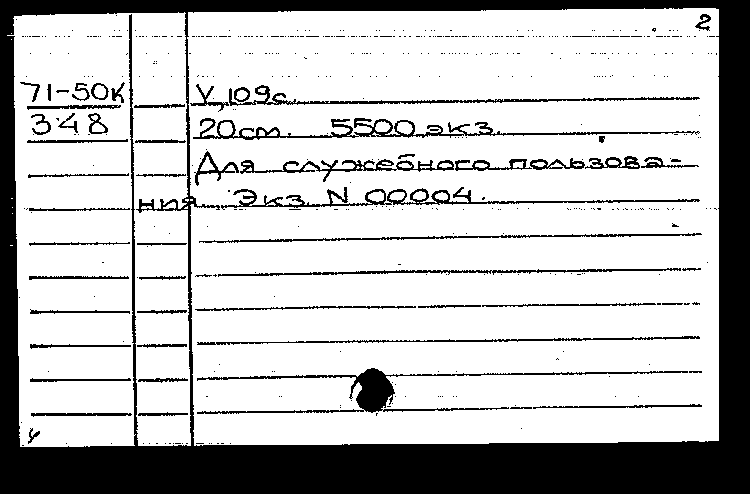 2
71-50К V, 109с.
3-48 20см. 5500 экз.
Для служебного пользова-
ния Экз. N 00004.